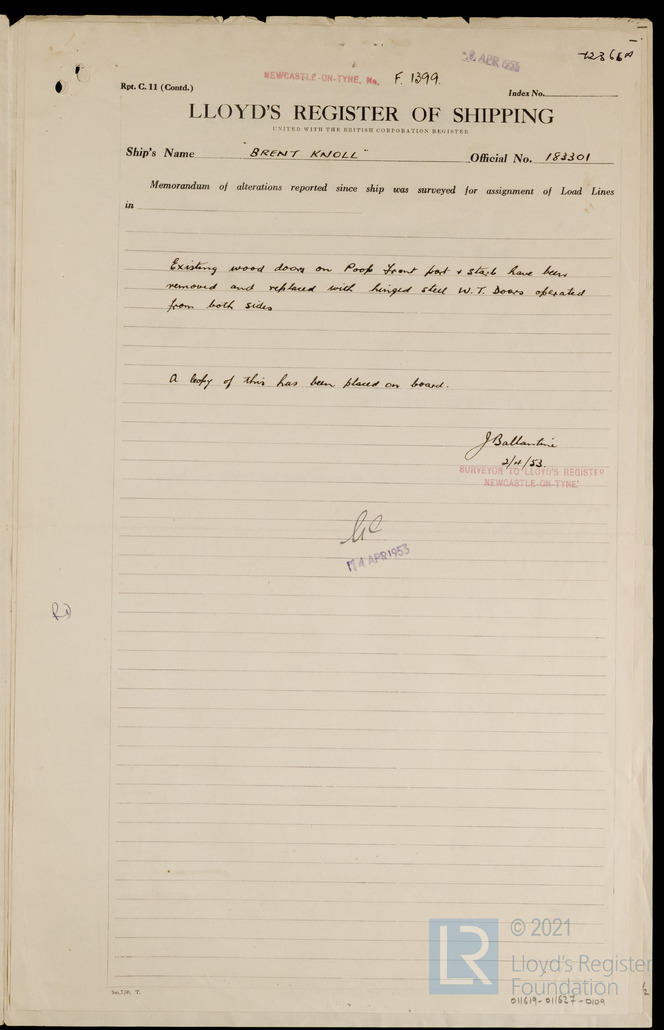 12366A
APR 1953
NEWCASTLE-ON-TYNE, No. F. 1399.
Rpt. C. 11 (Contd.)
Index No.
LLOYD'S REGISTER OF SHIPPING
UNITED WITH THE BRITISH CORPORATION REGISTER
Ship's Name "BRENT KNOLL" Official No. 183301
Memorandum of alterations reported since ship was surveyed for assignment of Load Lines
in
Existing wood doors on Poop Front port + starb have been
removed and replaced with hinged steel W.T. Doors operated
from both sides
A copy of this has been placed on board.
J Ballantine
2/4/53.
SURVEYOR TO LLOYD'S REGISTER
NEWCASTLE-ON-TYNE
14 APR 1953
© 2021
LR
Lloyd's Register
Foundation
011619-011627-0109